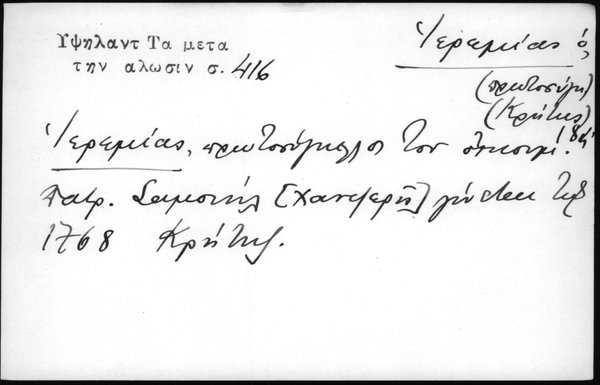 Υψηλαντ Τα μετα
την αλωσιν σ. 416
Ἱερεμίας ὁ
(πρωτοσύγκ)
(Κρήτης)
18
Ἱερεμίας, πρωτοσύγκελλος του οἰκουμ.
πατρ. Σαμουήλ [Χαντζερῆ] γίνεται
1768 Κρήτης.